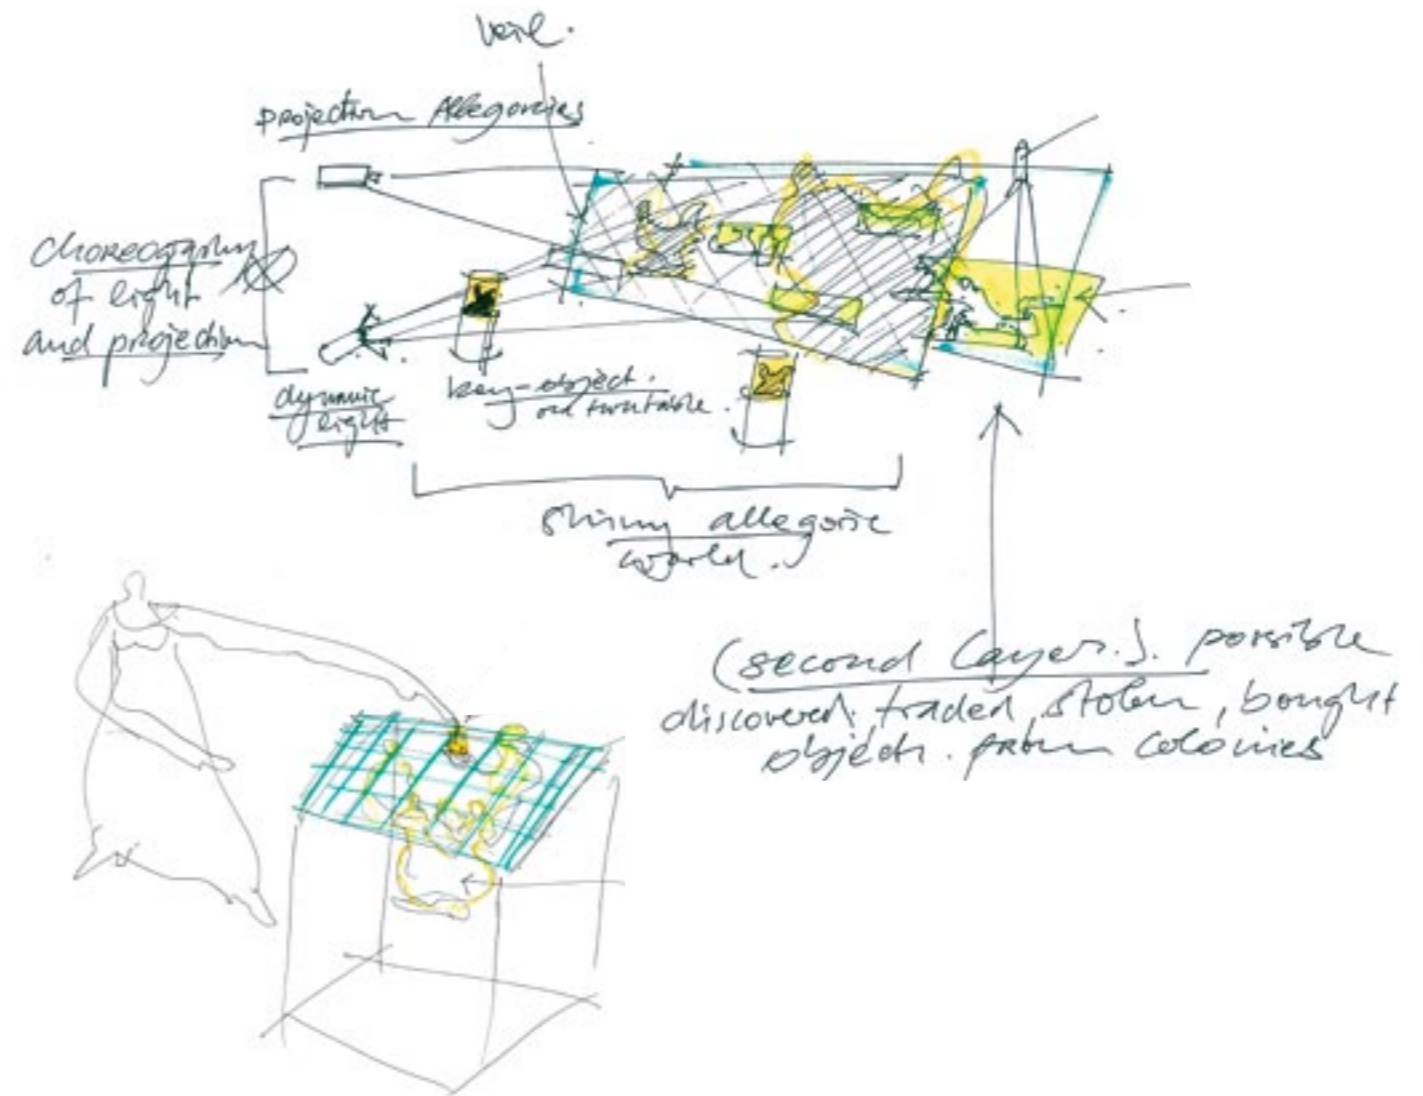 veil.
projection Allegories
choreography
of light
and projection
dynamic
light
key-object.
on turntable.
shiny allegoric
world.
(second layer.). possible
discovered, traded, stolen, bought
objects. from colonies